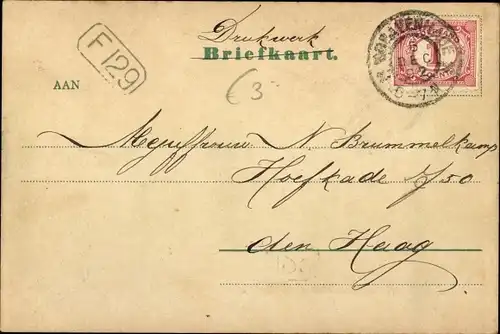 Drukwerk
Briefkaart.
F 129
AAN
€3
Mejuffrouw N. Brummelkamp
Hoefkade 450
den Haag